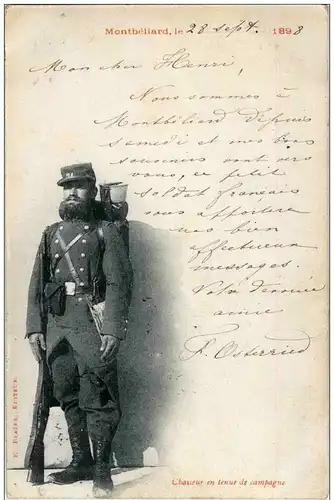 Montbéliard, le 28 sept. 1898
Mon cher Henri,
Nous sommes à
Montbéliard depuis
samedi et nos bons
souvenirs vont vers
vous, ce petit
soldat français
vous apportera
nos bien
affectueux
messages.
Votre
amie
F. Osterried
Chasseur en tenue de campagne
Éditeur.